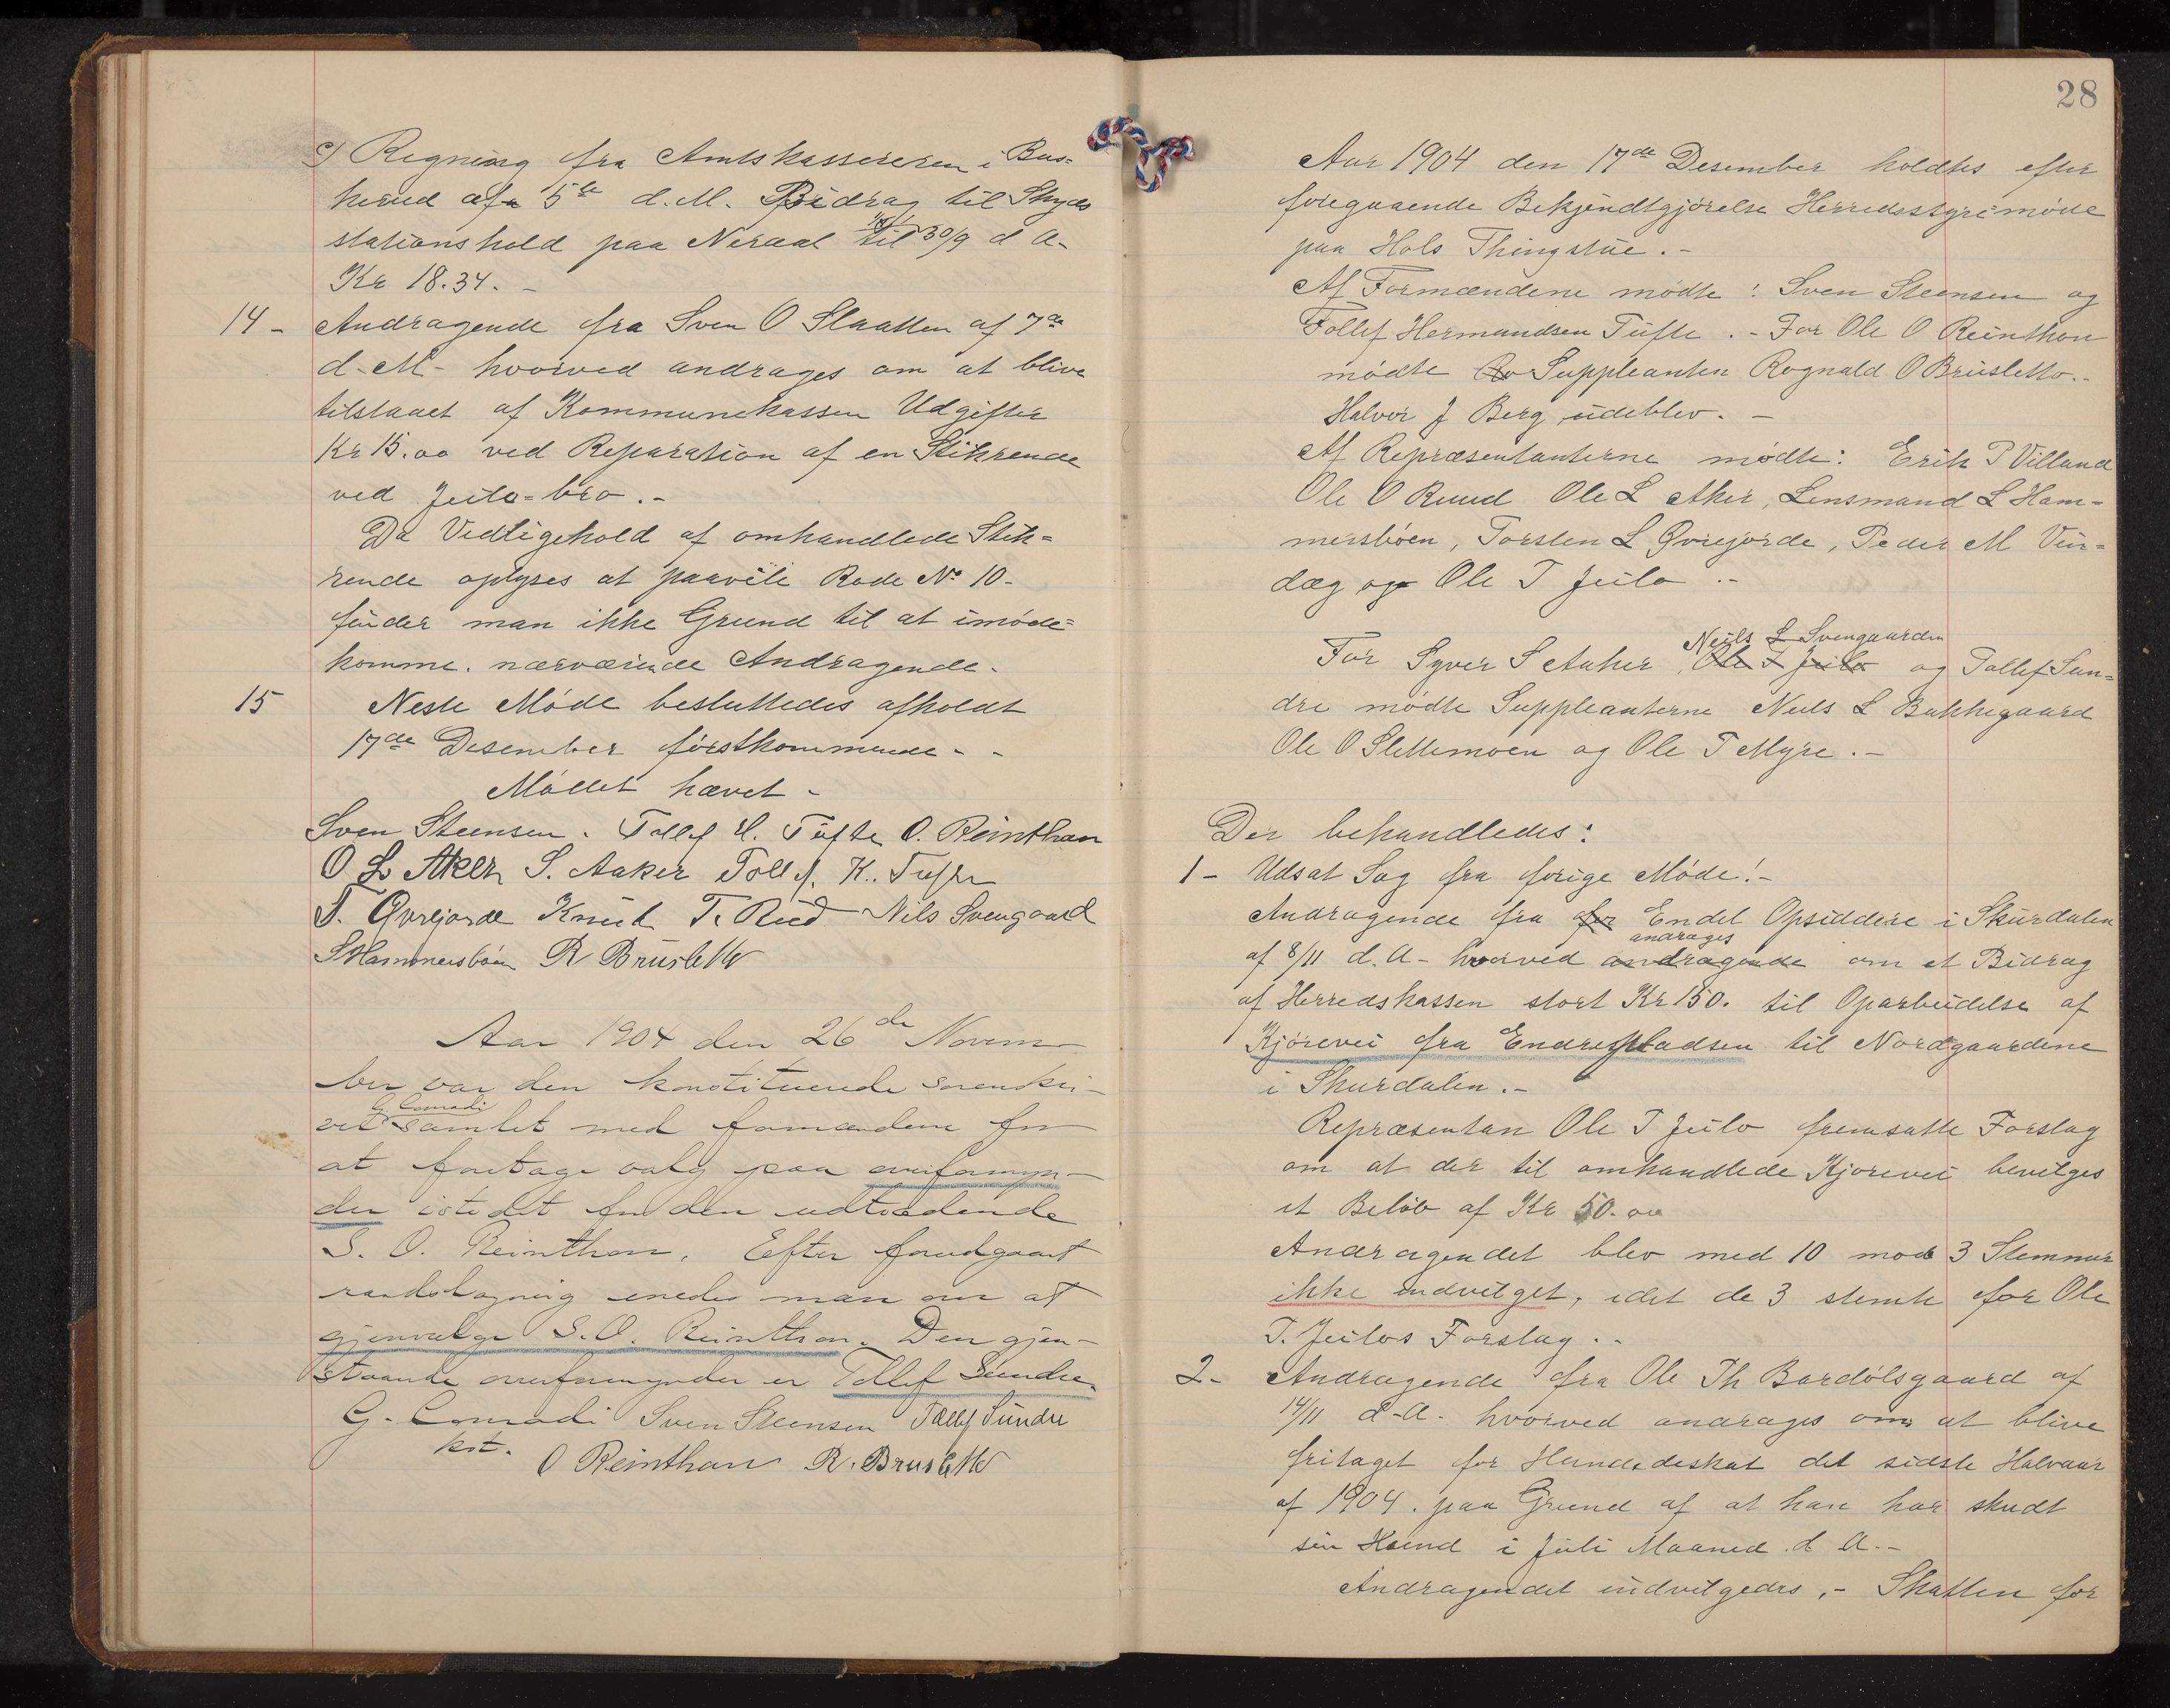 c) Regning fra Amtskassereren i Bus=
kerud af 5te d.M. Bidrag til Skyds
stationshold paa Neraal til 30/9 d A-
Kr 18.34. -
14 - Andragende fra Sven O Slaatten af 7de
d. M - hvorved andrages om at blive
tilstaaet af Kommunekassen Udgifter
Kr 15.00 ved Reparasion af en Stikrende
ved Jeilo=bro. -
Da Vedligehold af omhandlede Stik=
rende oplyses at paavile Rode No 10-
finder man ikke Grund til at imøde=
komme nærværende Andragende.
15 Neste Møde besluttedes afholdt
17de Desember førstkommende - -
Mødet hævet -
Sven Steensen. Tollef H. Tufte O. Reinthon
O L Aker S. Aaker Tollef. K. Tufte
T. Øvrejorde Knud T. Rud Nils Svengaard
S Hammersbøen R Brusletto
Aar 1904 den 26de Novem-
ber var den konstituerede sorenskri-
ver G. Conradi samlet med formændene for
at foretage valg paa overformyn-
der istedet for den udtrædende
S. O. Reinthon. Efter foregaaet
raadslagning enedes man om at
gjenvælge S. O. Reinthon. Den gjen-
staaende overformynder er Tollef Sundre.
G. Conradi Sven Steensen Tollef Sundre
kst. O Reinthon R. Brusletto
28
Aar 1904 den 17de Desember holdtes efter
foregaaende Bekjendtgjørelse Herredsstyremøde
paa Hols Thingstue. -
Af Formændene mødte: Sven Steensen og
Tollef Hermundsen Tufte. - For Ole O Reinthon
mødte Suppleanten Rognald O Brusletto. -
Halvor J Berg udeblev. -
Af Repræsentanterne mødte: Erik T Villand
Ole O Ruud Ole L Aker, Lensmand L Ham=
mersbøen, Torsten L Øvrejorde, Peder M Vin=
dæg og Ole T Jeilo. -
Niels L Svengaarden
For Syver S Aaker, Ole T Jeilo og Tollef Sun=
dre mødte Suppleanterne Niels L Bakkegaard
Ole O Slettemoen og Ole T Myre. -
Der behandledes:
1 - Udsat Sag fra forige Møde! -
Andragende fra for Endel Opsiddere i Skurdalen
andrages
af 8/11 d.A - hvorved andragende om et Bidrag
af Herredskassen stort Kr 150. til Oparbeidelse af
Kjørevei fra Endrepladsen til Nordgaardene
i Skurdalen. -
Repræsentan Ole T Jeilo fremsatte Forslag
om at der til omhandlede Kjorevei bevilges
et Beløb af Kr 50.00
Andragendet blev med 10 mod 3 Stemmer
ikke indvilget, idet de 3 stemte for Ole
T. Jeilos Forslag. -
2 - Andragende fra Ole Th Bardølsgaard af
14/11 d-A. hvorved andrages om at blive
fritaget for Hundeskat det sidste Halvaar
af 1904. paa Grund af at han har skudt
sin Hund i Juli Maaned d A. -
Andragendet indvilgedes, - Skatten for